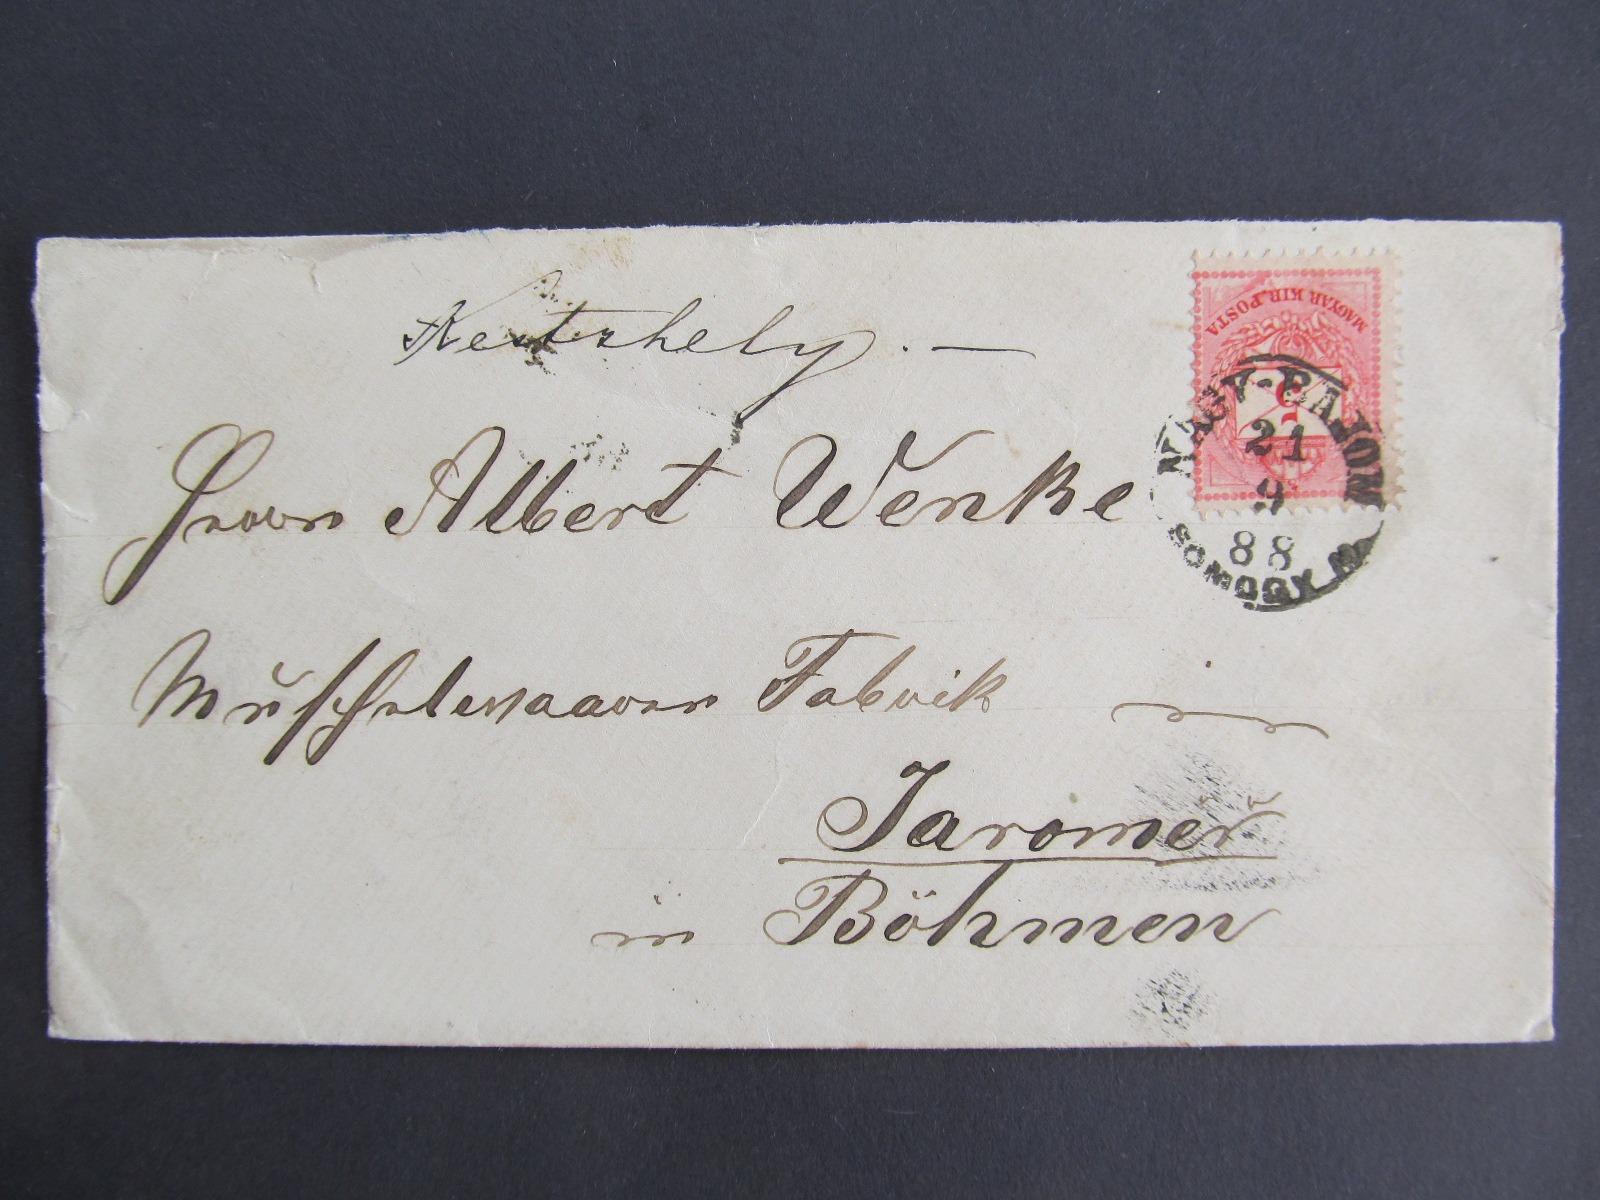 Kestzhely. —
MAGYAR KIR. POSTA
5
NAGY-BAJOM
21
9
88
SOMOGY M
Herrn Albert Wenke
Muschelwaaren Fabrik in
Jaroměř
in Böhmen